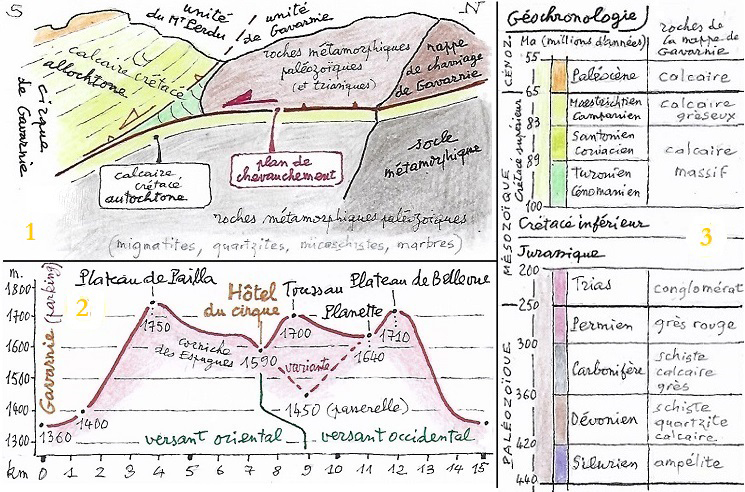 S
unité
du Mt Perdu
unité
de Gavarnie
N
roches métamorphiques
paléozoïques
(et triasiques)
nappe
de charriage
de Gavarnie
calcaire crétacé
allochtone
cirque
de Gavarnie
plan de
chevauchement
socle
métamorphique
calcaire
crétacé
autochtone
roches métamorphiques paléozoïques
(migmatites, quartzites, micaschistes, marbres)
1
2
m.
1800
1700
1600
1500
1400
1300
Gavarnie (parking)
Plateau de Pailla
Hôtel
du cirque
Toussau
Planette
Plateau de Bellevue
1750
1700
1710
corniche
des Espugues
1590
1640
variante
1450 (passerelle)
1360
1400
versant oriental
versant occidental
km 0 1 2 3 4 5 6 7 8 9 10 11 12 13 14 15
Géochronologie
roches de
la nappe de
Gavarnie
Ma (millions d'années)
CÉNOZ.
55
Paléocène
calcaire
65
MÉSOZOÏQUE
Crétacé supérieur
Maestrichtien
Campanien
calcaire
gréseux
83
Santonien
Coniacien
calcaire
massif
89
Turonien
Cénomanien
100
Crétacé inférieur
3
Jurassique
200
Trias
conglomérat
250
PALÉOZOÏQUE
Permien
grès rouge
300
Carbonifère
schiste
calcaire
grès
360
Dévonien
schiste
quartzite
calcaire
420
Silurien
ampélite
440